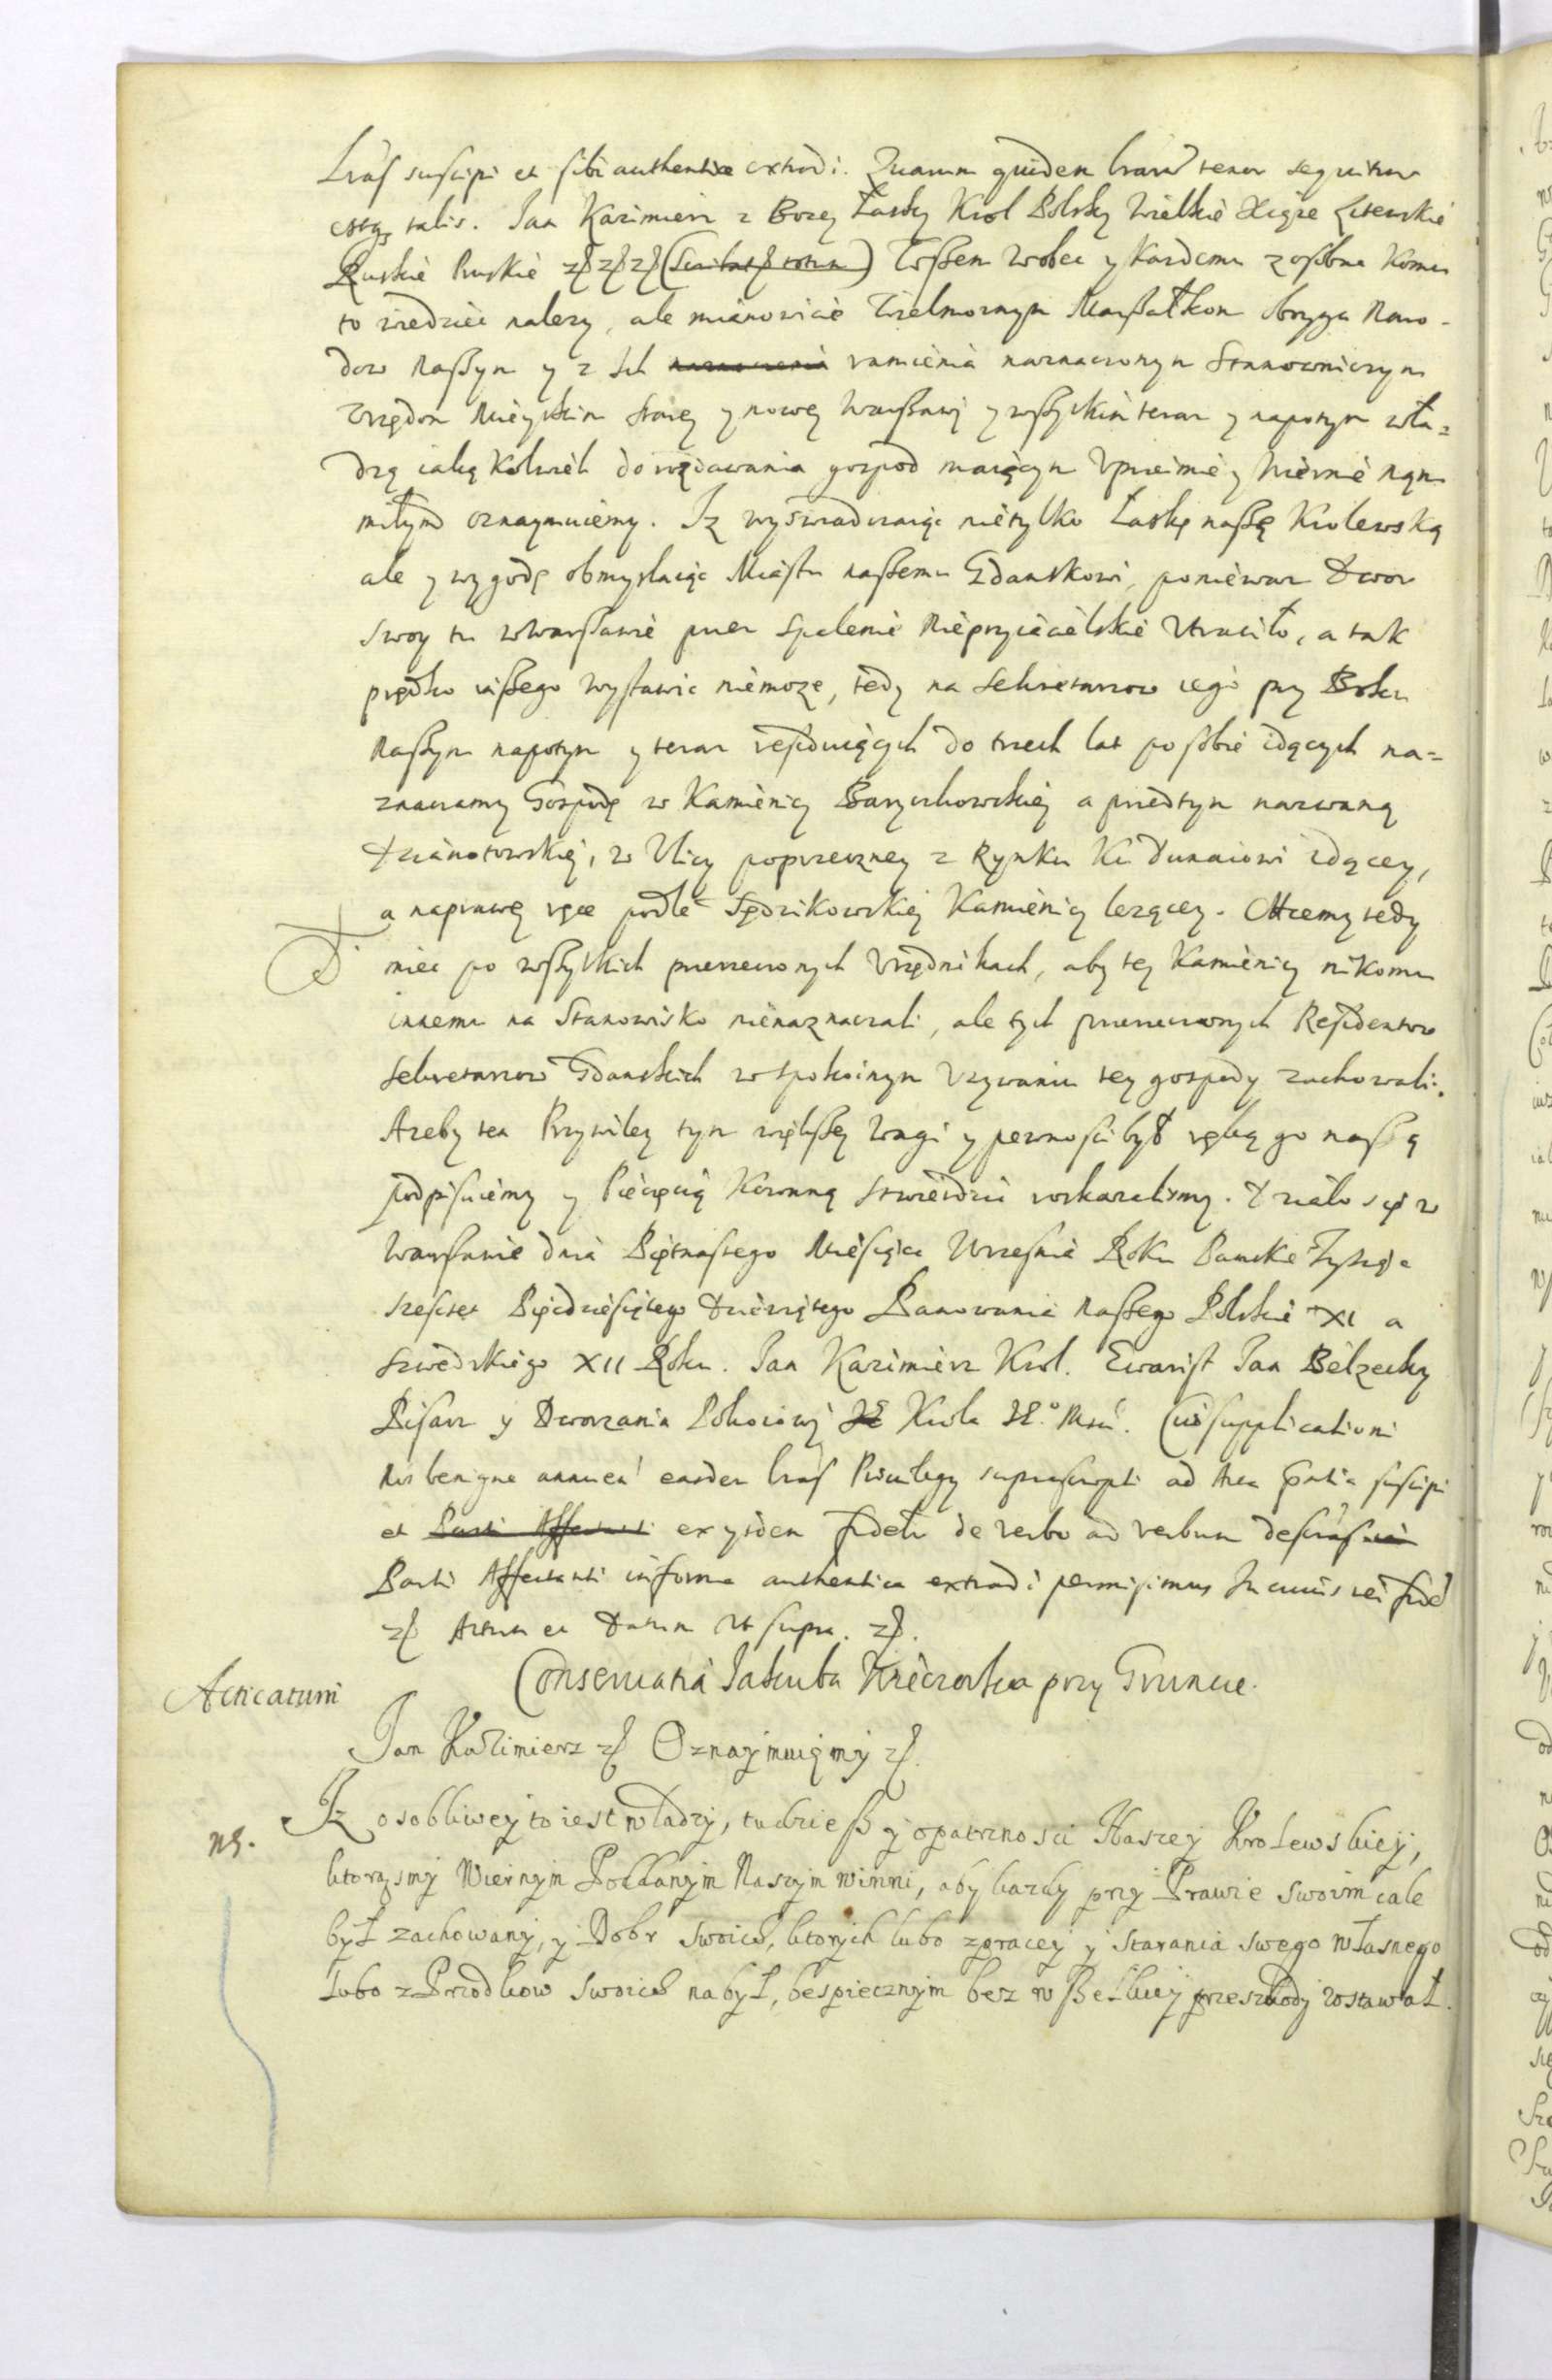 Lras suscipi et sibi authentice extradi. Quarum quidem lrarum tenor sequitur
estq talis. Jan Kazimierz z Bozey Łasky Krol Polsky Wielkie Xiąze Litewskie
Ruskie Pruskie Wszem wobec y Kazdemu zosobna Komu
to wiedziec nalezy, ale mianowicie Wielmoznym Marszałkom oboyga Naro-
dow Naszym y z Ich ramienia naznaczonym Stanowniczym
Urzędom Mieyskim Starey y nowey Warszawy y wszytkim teraz y napotym wła=
dzą iaką Kolwiek do rozdawania gospod maiącym Uprzeimie y Wiernie nam
miłym oznaymuiemy. Iz wyswiadczaiąc nietylko Łaskę naszę Krolewską
ale y wygodę obmyslaiąc Miastu naszemu Gdanskowi, poniewaz Dwor
swoy tu w Warszawie przez Spalenie Nieprzyiacielskie Utraciło, a tak
prędko inszego wystawic niemoze, tedy na Sekretarzow iego przy Boku
Naszym napotym y teraz residuiących do trzech lat po sobie idących na=
znaczamy Gospodę w Kamienicy Baryczkowskiey a przedtym nazwaney
Dzianotowskiey, w Ulicy poprzeczney z Rynku Ku Dunaiowi idącey,
a naprawey ręce podle Sędzikowskiey Kamienicy lezącey. Chcemy tedy
miec po wszytkich przerzeczonych Urzędnikach, aby tey Kamienicy nikomu
innemu na Stanowisko nienaznaczali, ale tych przerzeczonych Residentow
Sekretarzow Gdanskich w spokoinym Uzywaniu tey gospody zachowali.
Azeby ten Przywiley tym większey Wagi y pewnosci był ręką go naszą
podpisuiemy y Pieczęcią Koronną stwierdzic roskazalismy. Działo się w
Warszawie dnia Piętnastego Miesiąca Wrzesnia Roku Panske Tysiąc
szescset Pięcdziesiątego Dziewiątego Panowania Naszego Polskie XI a
Szwedzkiego XII Roku. Jan Kazimierz Krol. Ewarist Jan Bełzecky
Pisarz y Dworzanin Pokoiowy Krola Cui supplicationi
Nos benigne easdem lras Privilegy suprascripti ad Acta suscipi
et exysdem de verbo ad verbum
Parti Affectanti in forma authentica extradi permisimus In cuius rei fidē
Actum et Datum Ut supra.
Acticatum
Conservatia Jakuba przy Gruncie.
Jan Kazimierz Oznaymuięmy
NB.
Iz osobliwey to iest władzy, tudziesz y opatrznosci Naszey Krolewskiey,
ktorąsmy Wiernym Poddanym Naszym winni, aby kazdy przy Prawie swoim cale
był zachowany, y Dobr swoich, ktorych lubo zpracey y starania swego własnego
lubo z Przodkow swoich nabył, bespiecznym bez wszelkiey przeszkody zostawał.